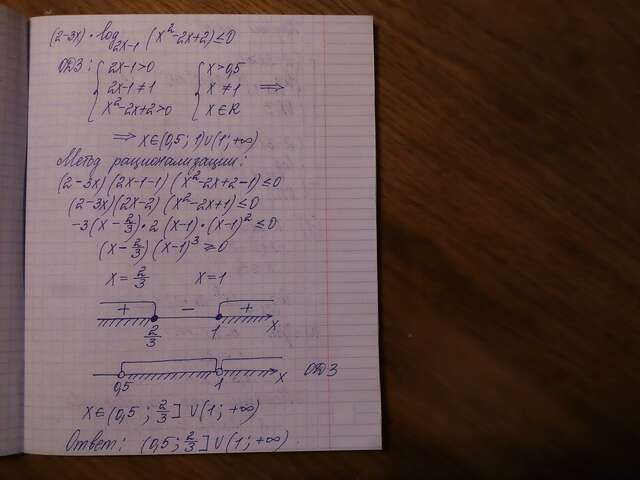 (2-3x)·log₂ₓ₋₁(x²-2x+2)≤0
ОДЗ: { 2x-1>0 { x>0,5
2x-1≠1 x≠1 ⟹
x²-2x+2>0 x∈R
⟹ x∈(0,5; 1)∪(1;+∞)
Метод рационализации:
(2-3x)(2x-1-1)(x²-2x+2-1)≤0
(2-3x)(2x-2)(x²-2x+1)≤0
-3(x-2/3)·2(x-1)·(x-1)²≤0
(x-2/3)(x-1)³≥0
x=2/3 x=1
+ - +
2/3 1 x
0,5 1 x ОДЗ
x∈(0,5; 2/3]∪(1;+∞)
Ответ: (0,5; 2/3]∪(1;+∞).